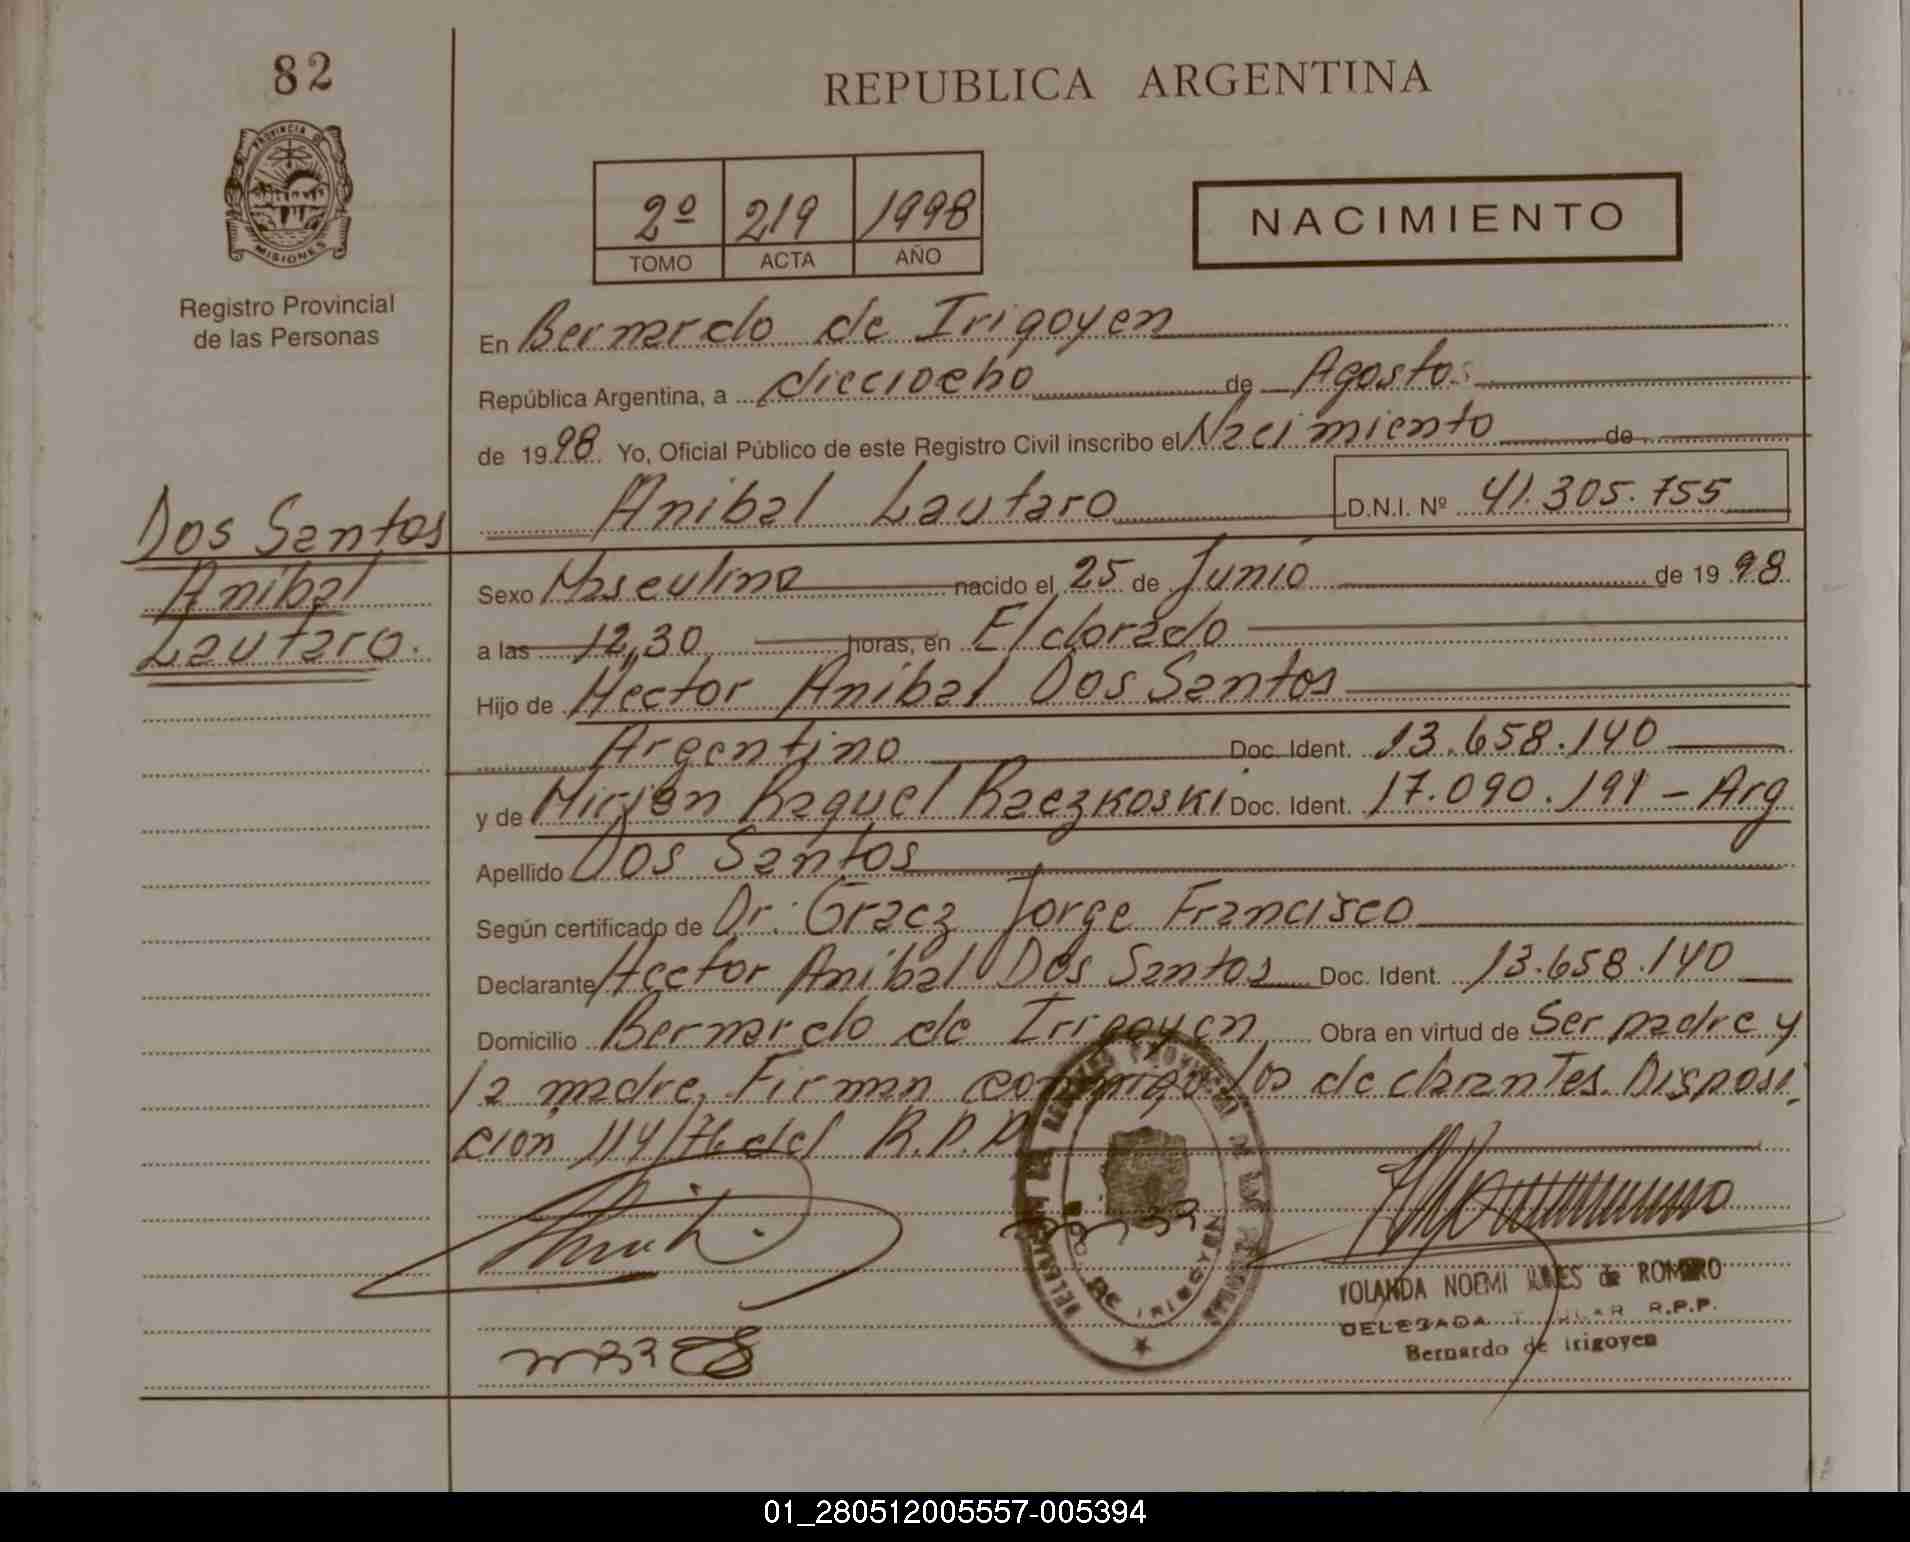 82
REPUBLICA ARGENTINA
PROVINCIA DE
MISIONES
Registro Provincial
de las Personas
2º 219 1998
TOMO ACTA AÑO
NACIMIENTO
En Bernardo de Irigoyen
República Argentina, a diecciocho de Agosto
de 1998 Yo, Oficial Público de este Registro Civil inscribo el Nacimiento de
Anibal Lautaro D.N.I. Nº 41.305.755
Dos Santos
Anibal
Lautaro.
Sexo Masculino nacido el 25 de Junio de 1998
a las 12,30 horas, en Eldorado
Hijo de Hector Anibal Dos Santos
Argentino Doc. Ident. 13.658.140
y de Mirian Raquel Raczkoski Doc. Ident. 17.090.191 - Arg
Apellido Dos Santos
Según certificado de Dr. Gracz Jorge Francisco
Declarante Hector Anibal Dos Santos Doc. Ident. 13.658.140
Domicilio Bernardo de Irigoyen Obra en virtud de Ser padre y
la madre. Firman conmigo los declarantes. Disposi
ción 114/76 del R.P.P.
DE IRIGOYEN
YOLANDA NOEMI de ROMERO
DELEGADA TITULAR R.P.P.
Bernardo de Irigoyen
01_280512005557-005394